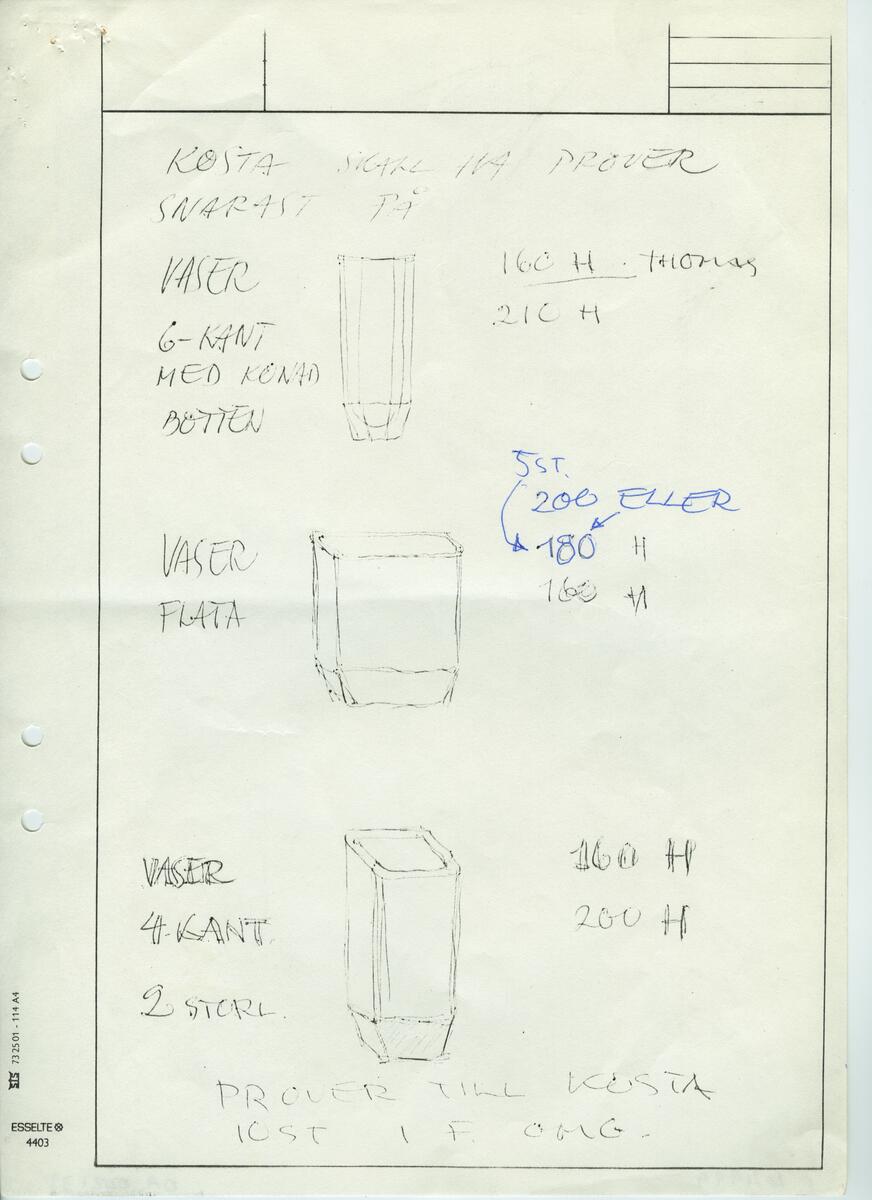 KOSTA SKALL HA PROVER
SNARAST PÅ
VASER
6-KANT
MED KONAD
BOTTEN
160 H. THOMAS
210 H
5 ST.
200 ELLER
180 H
160 H
VASER
FLATA
VASER
4-KANT.
2 STORL.
160 H
200 H
PROVER TILL KOSTA
10ST I F. OMG.
SIS 732501-114 A4
ESSELTE
4403